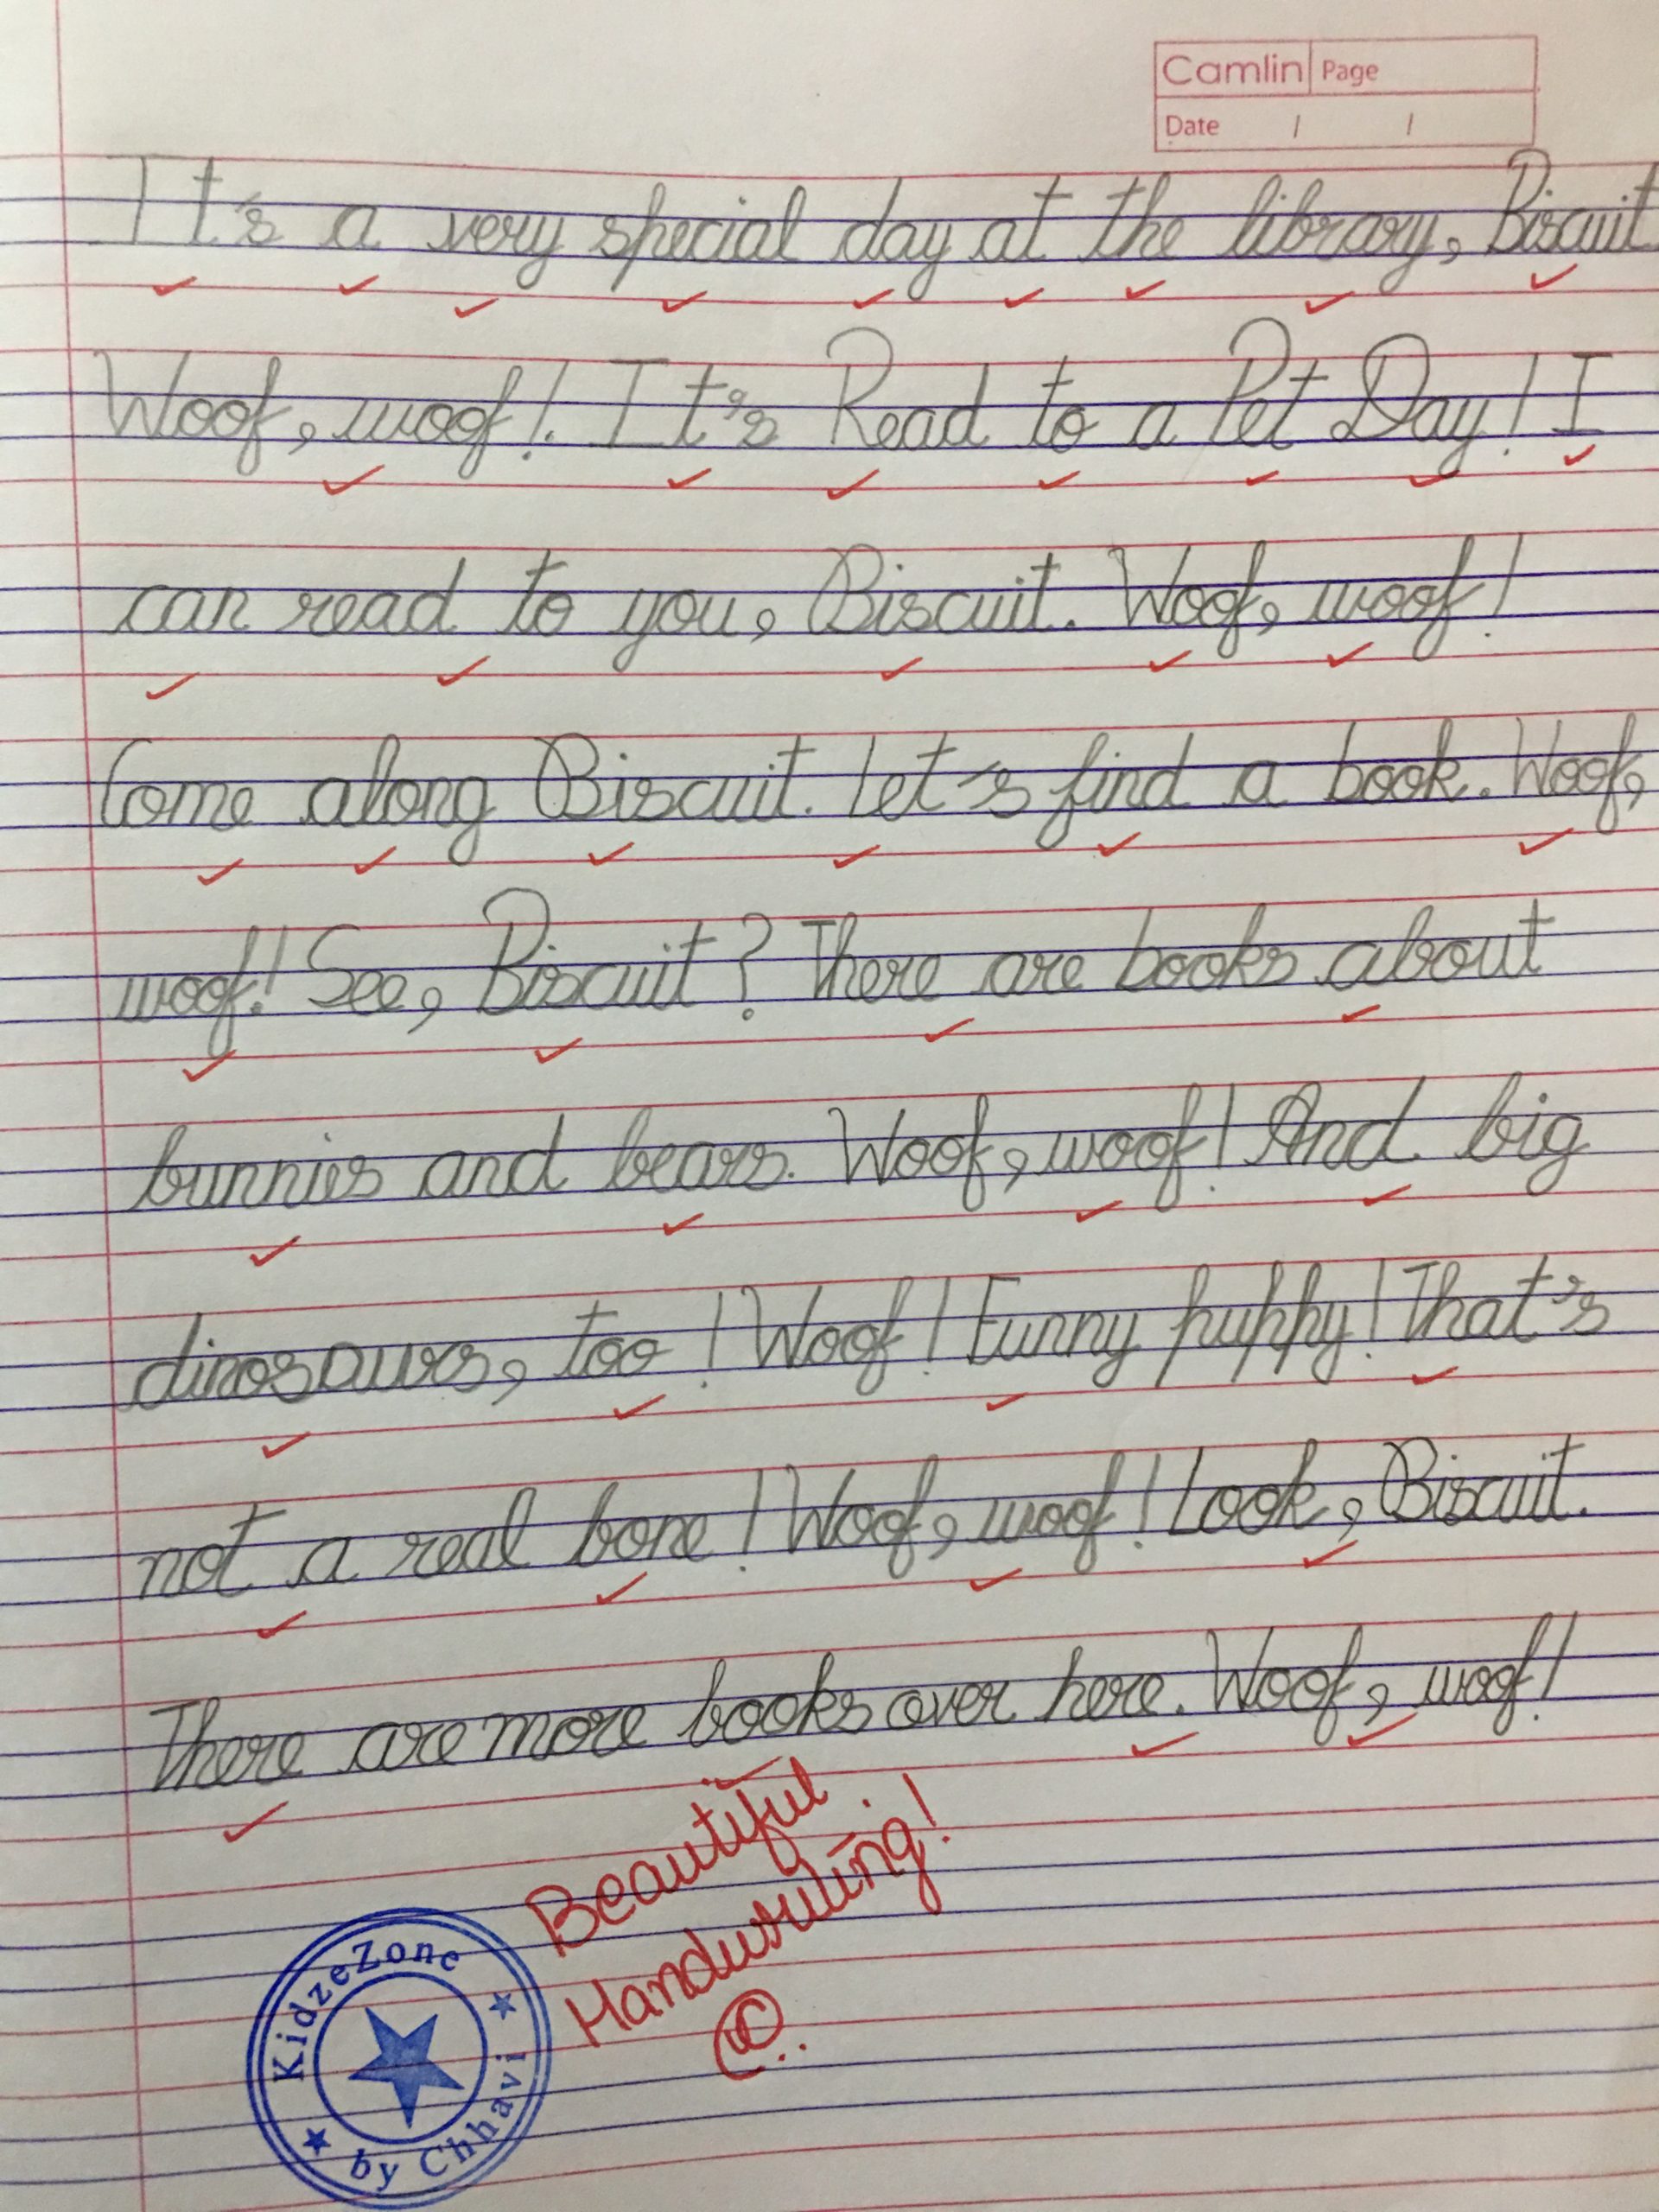 Camlin Page
Date / /
It's a very special day at the library, Biscuit
Woof, woof!. It's Read to a Pet Day! I
can read to you, Biscuit. Woof, woof!
Come along Biscuit. Let's find a book. Woof,
woof! See, Biscuit? There are books about
bunnies and bears. Woof, woof! And big
dinosaurs, too! Woof! Funny puppy! That's
not a real bone! Woof, woof! Look, Biscuit.
There are more books over here. Woof, woof!
Beautiful
Handwriting!
KidzeZone
by Chhavi